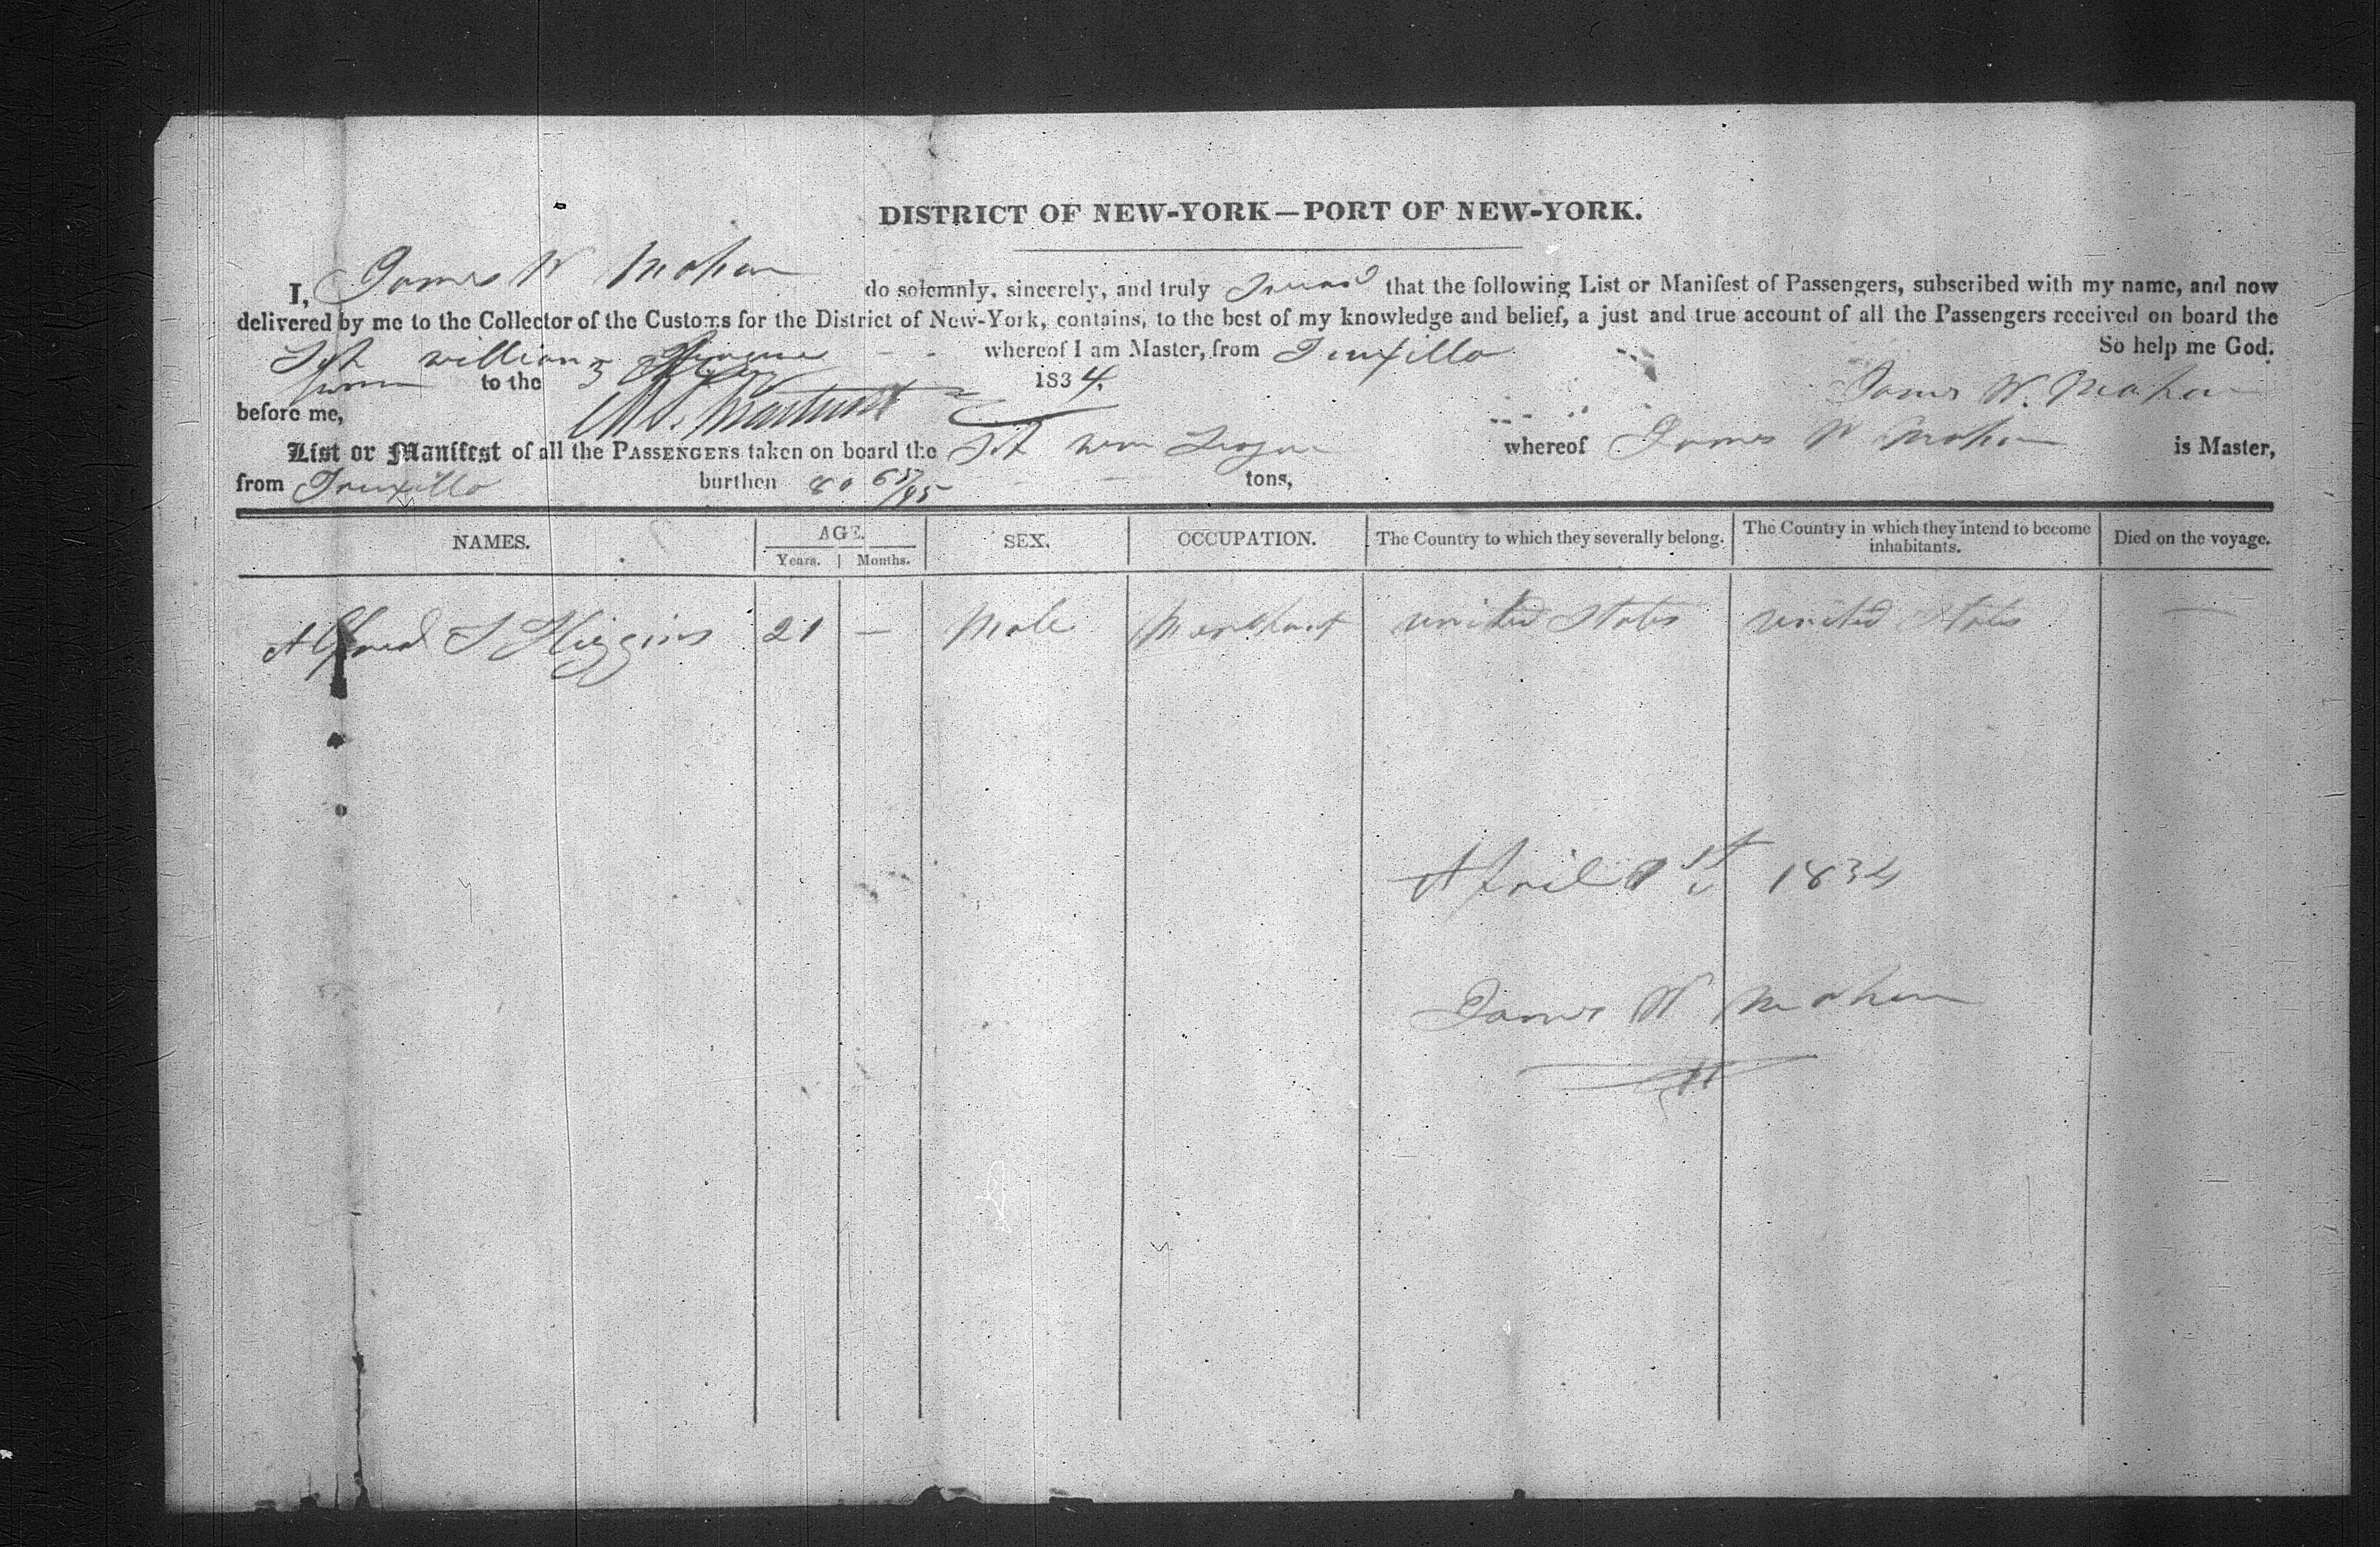 DISTRICT OF NEW-YORK—PORT OF NEW-YORK.
I, James W Mahan do solemnly, sincerely, and truly that the following List or Manifest of Passengers, subscribed with my name, and now
delivered by me to the Collector of the Customs for the District of New-York, contains, to the best of my knowledge and belief, a just and true account of all the Passengers received on board the
William whereof I am Master, from Truxillo So help me God.
Sworn to the 3 1834. James W. Mahan
before me,
List or Manifest of all the PASSENGERS taken on board the Wm whereof James W Mahan is Master,
from Truxillo burthen 80 65/95 tons,
NAMES. AGE. SEX. OCCUPATION. The Country to which they severally belong. The Country in which they intend to become inhabitants. Died on the voyage.
Years. Months.
Alfred S Higgins 21 — Male Merchant united States united States —
April 1st 1834
James W Mahan